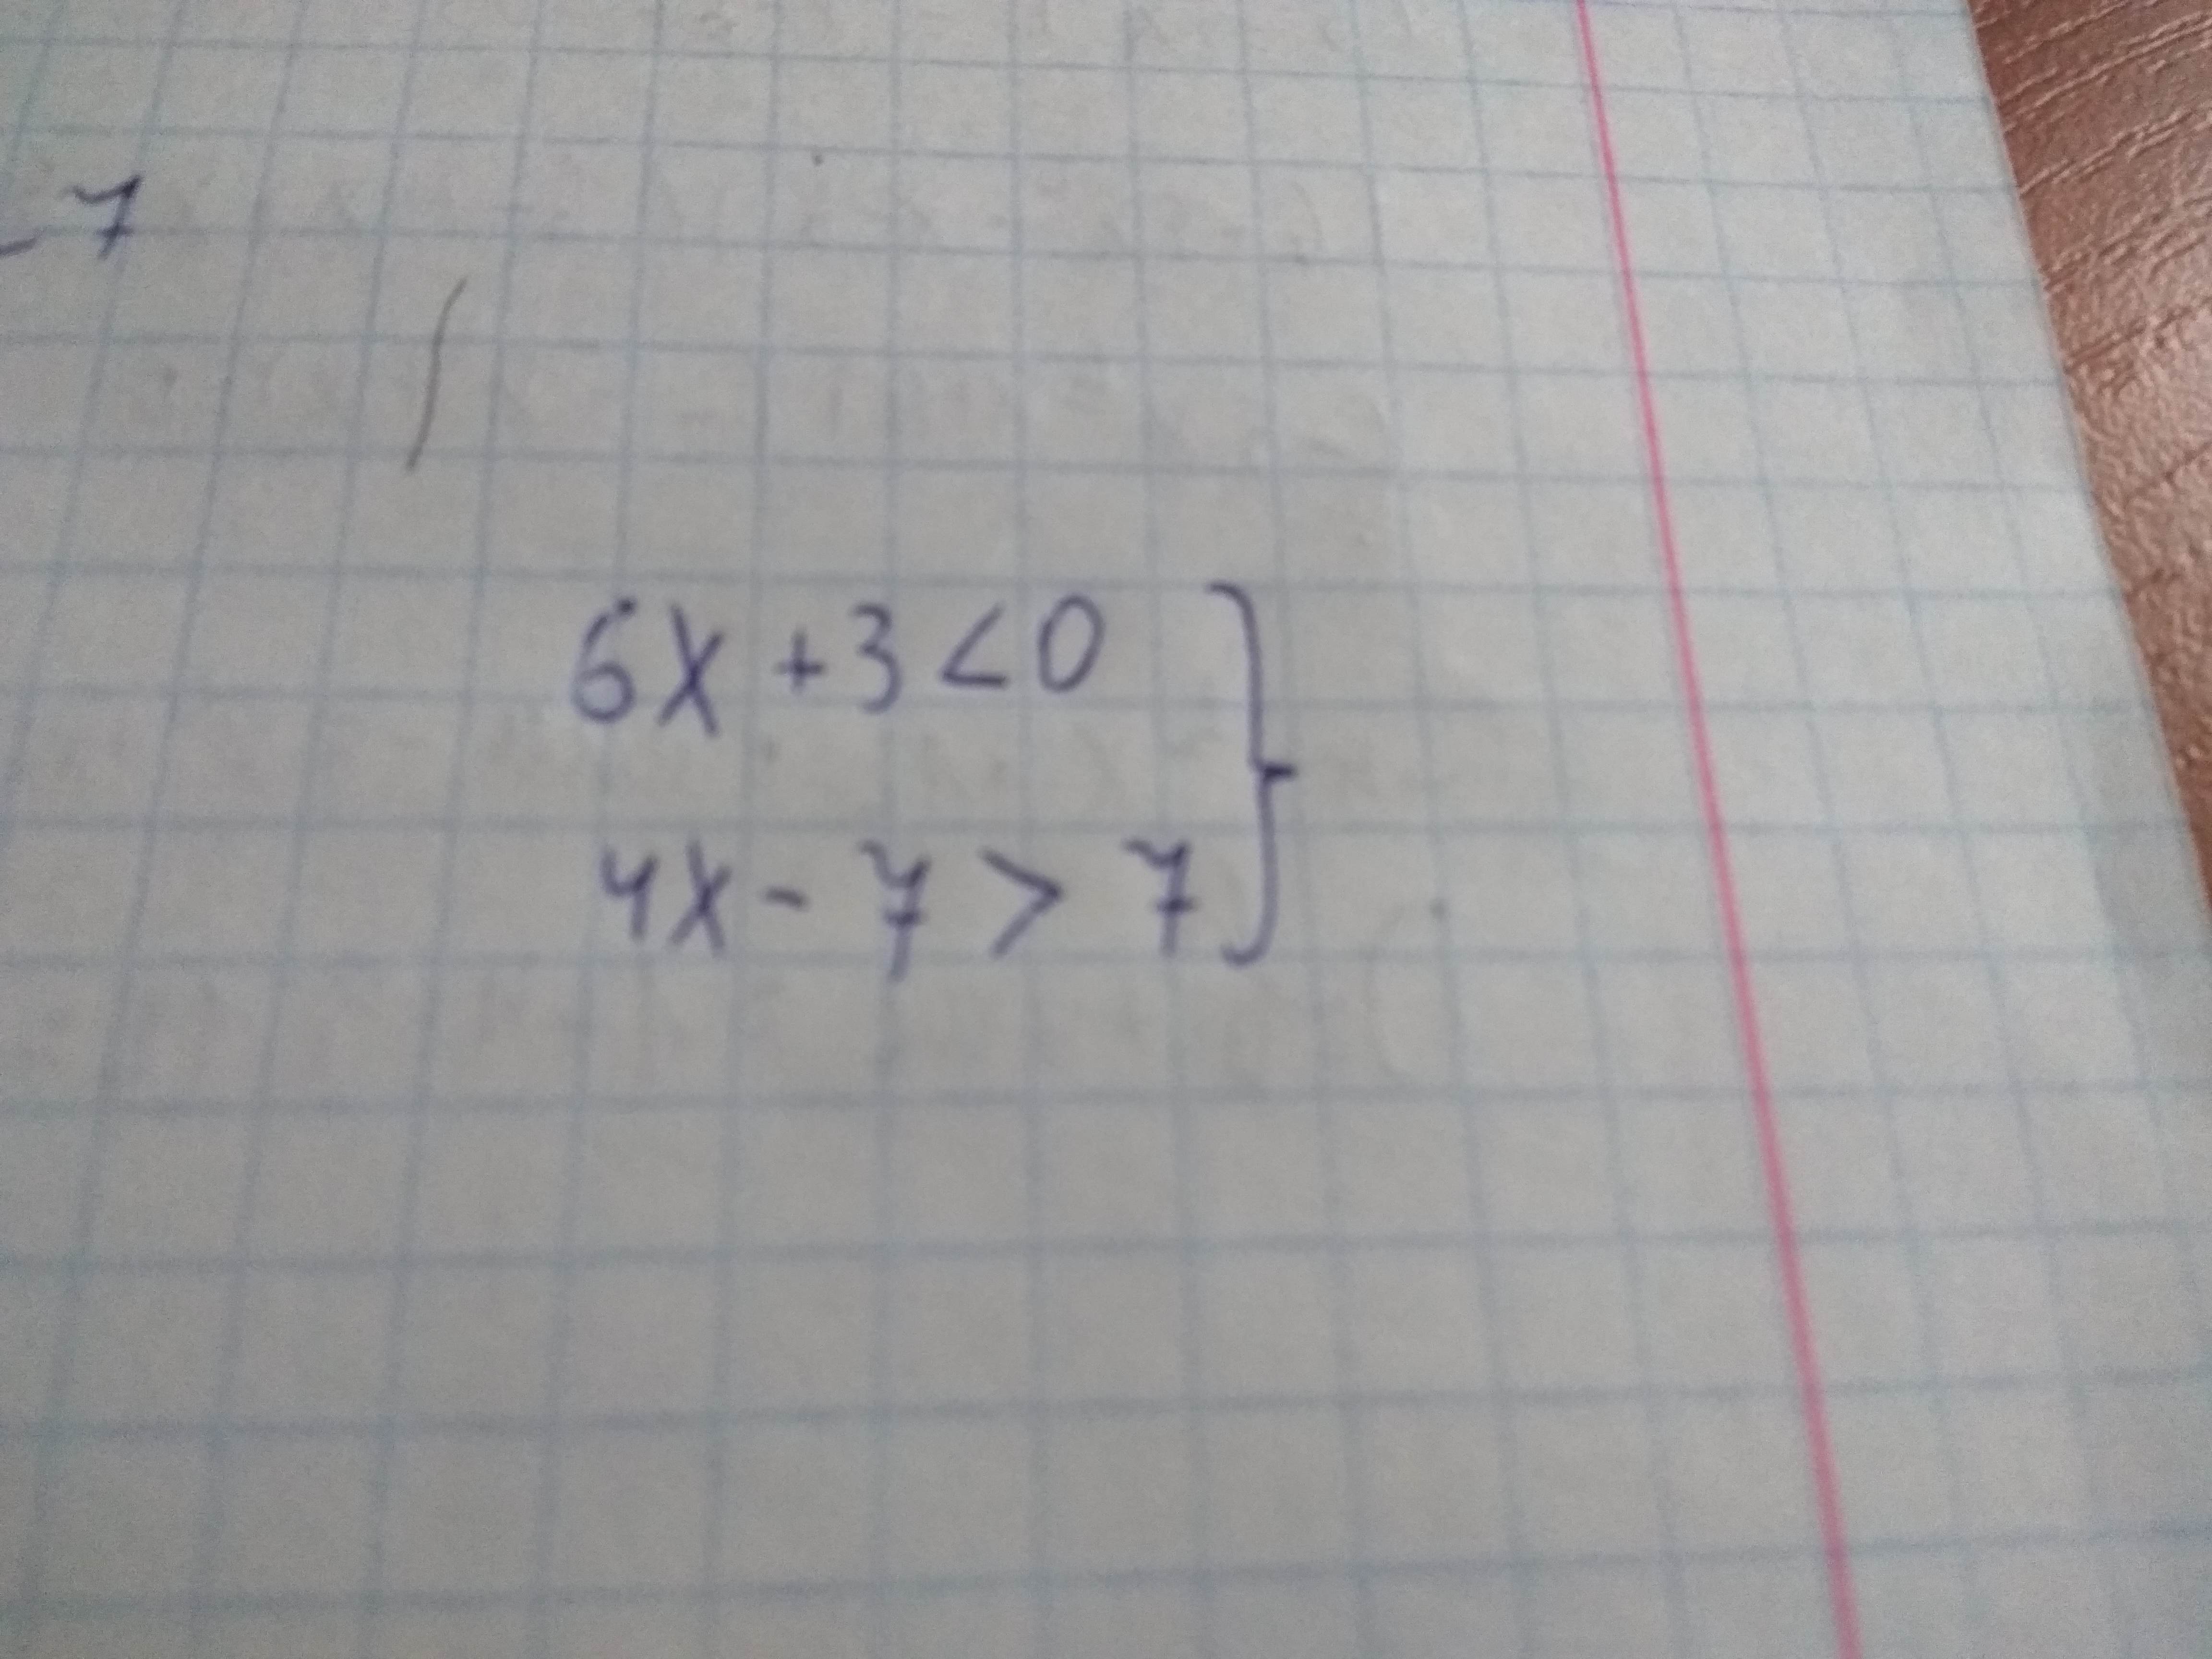 -7
6x + 3 < 0
4x - 7 > 7